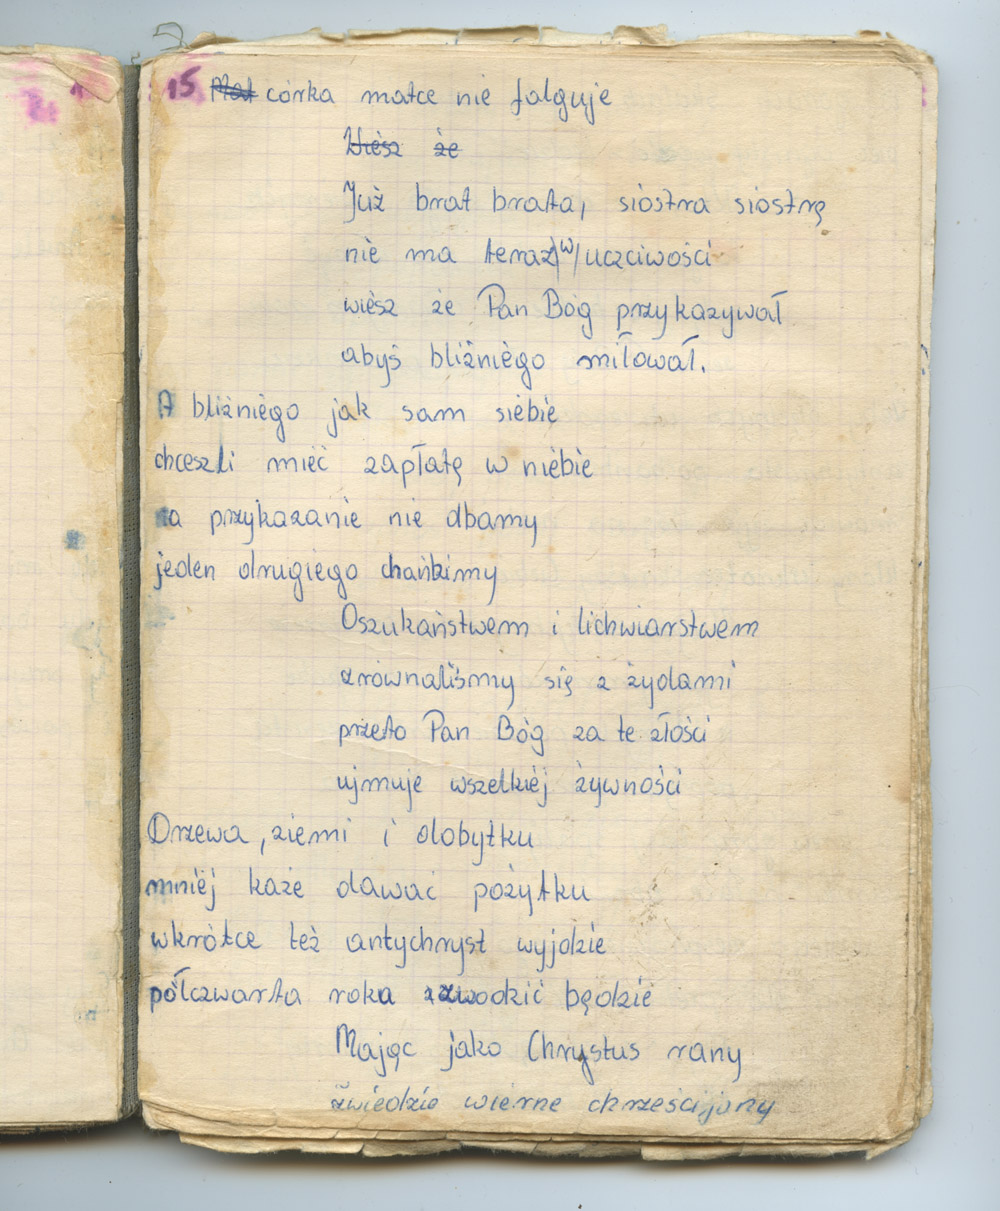 15 Mat córka matce nie folguje
Wiesz że
Już brat brata, siostra siostrę
nie ma teraz w uczciwości
wiesz że Pan Bóg przykazywał
abyś bliźniego miłował.
A bliźniego jak sam siebie
chceszli mieć zapłatę w niebie
a przykazanie nie dbamy
jeden drugiego chańbimy
Oszukaństwem i lichwiarstwem
zrównaliśmy się z żydami
przeto Pan Bóg za te złości
ujmuje wszelkiej żywności
Drzewa, ziemi i dobytku
mniej każe dawać pożytku
wkrótce też antychryst wyjdzie
półczwarta roku zwodzić będzie
Mając jako Chrystus rany
zwiedzie wierne chrześcijany